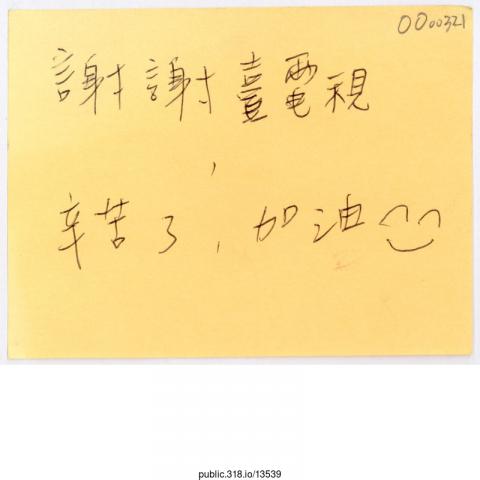 0000321
謝謝壹電視
，
辛苦了，加油
public.318.io/13539